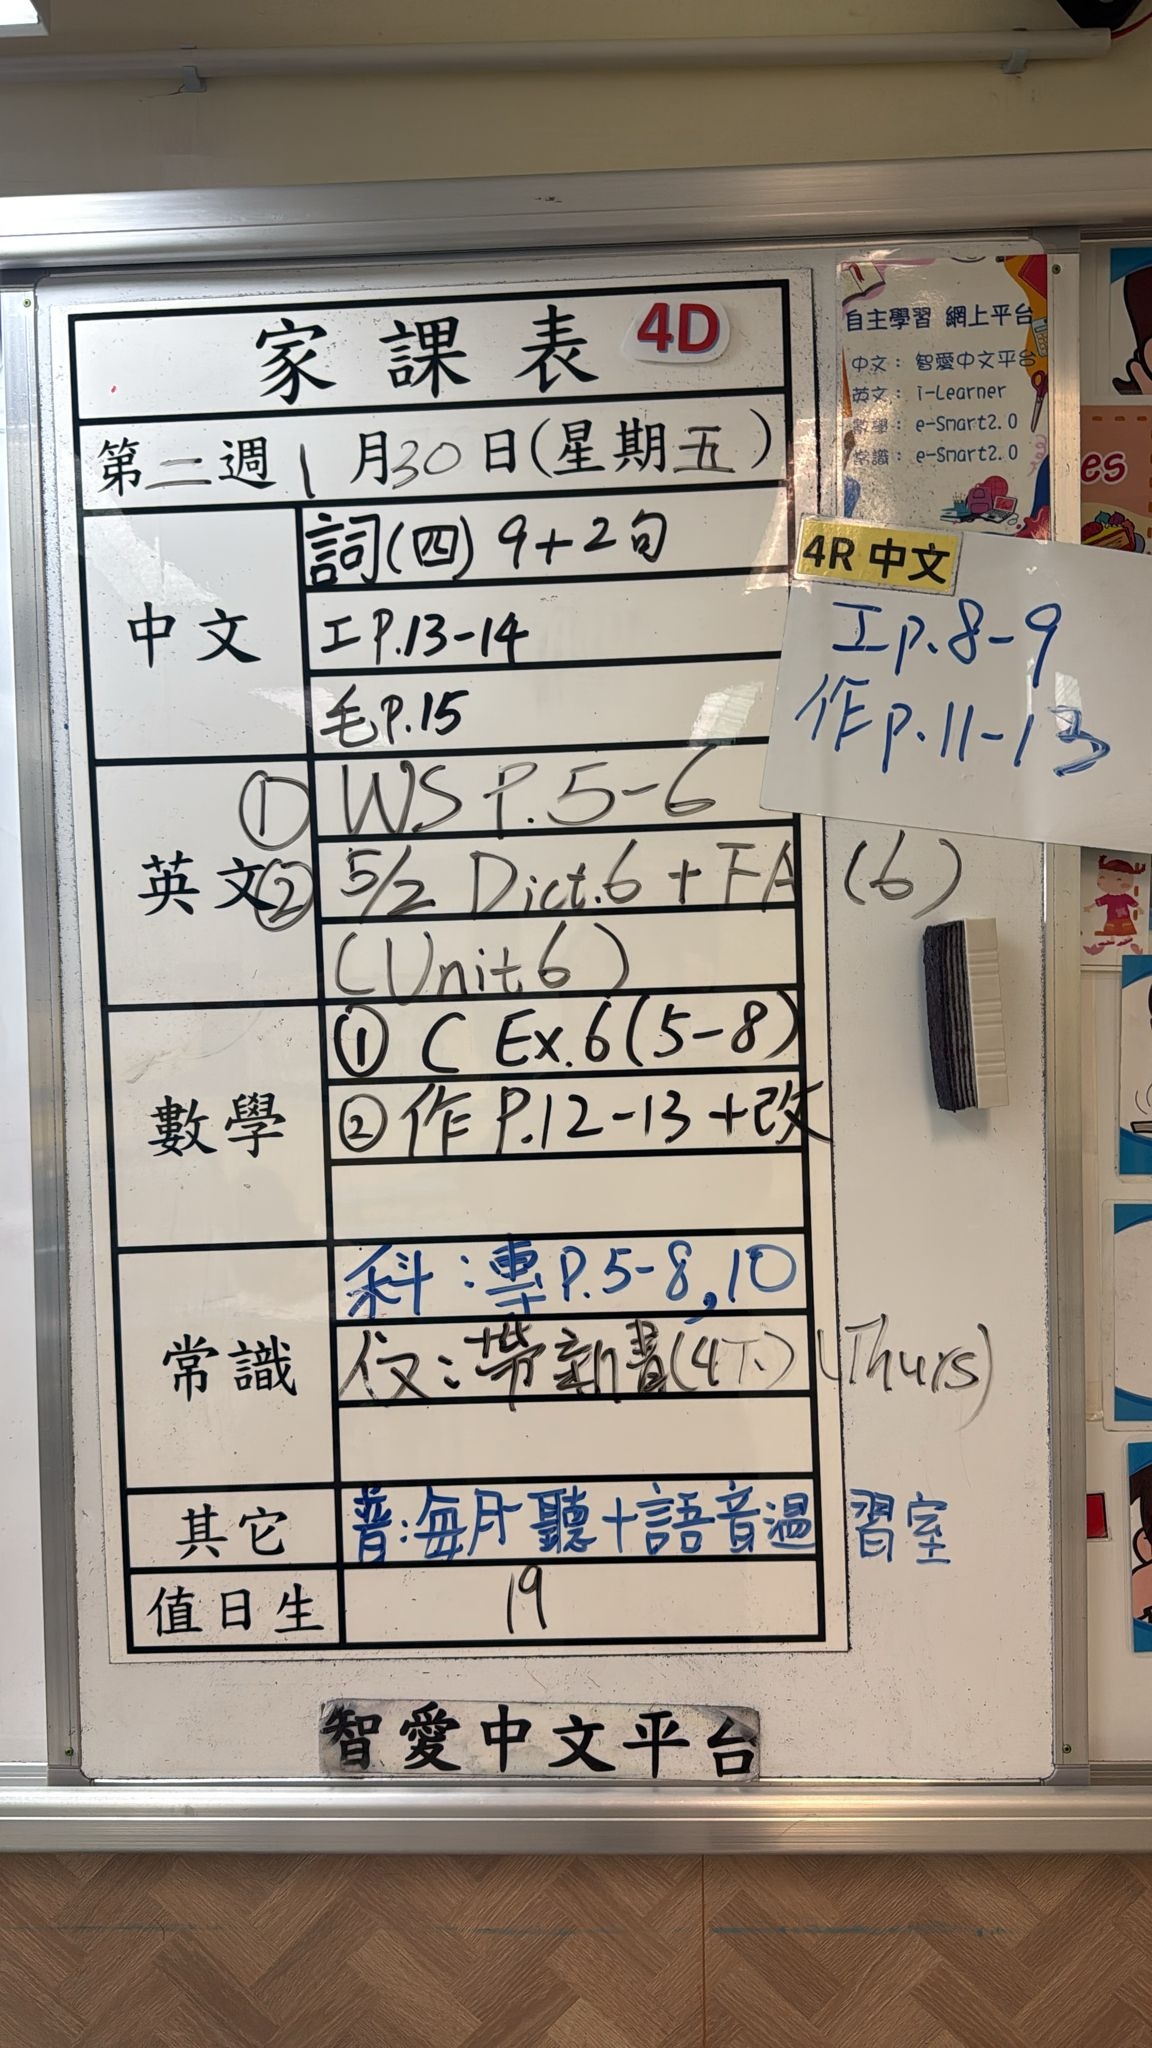 家課表 4D
第二週 1月30日(星期五)
中文
詞(四) 9+2句
工P.13-14
毛P.15
英文
① WS P.5-6
② 5/2 Dict.6 + FA (6)
(Unit 6)
數學
① C Ex.6(5-8)
② 作 P.12-13+改
常識
科:專P.5-8,10
人文:帶新書(4下) (Thurs)
其它
普:每月聽+語音溫習室
值日生
19
智愛中文平台
自主學習 網上平台
中文: 智愛中文平台
英文: i-Learner
數學: e-Smart2.0
常識: e-Smart2.0
4R 中文
工p.8-9
作p.11-13
es